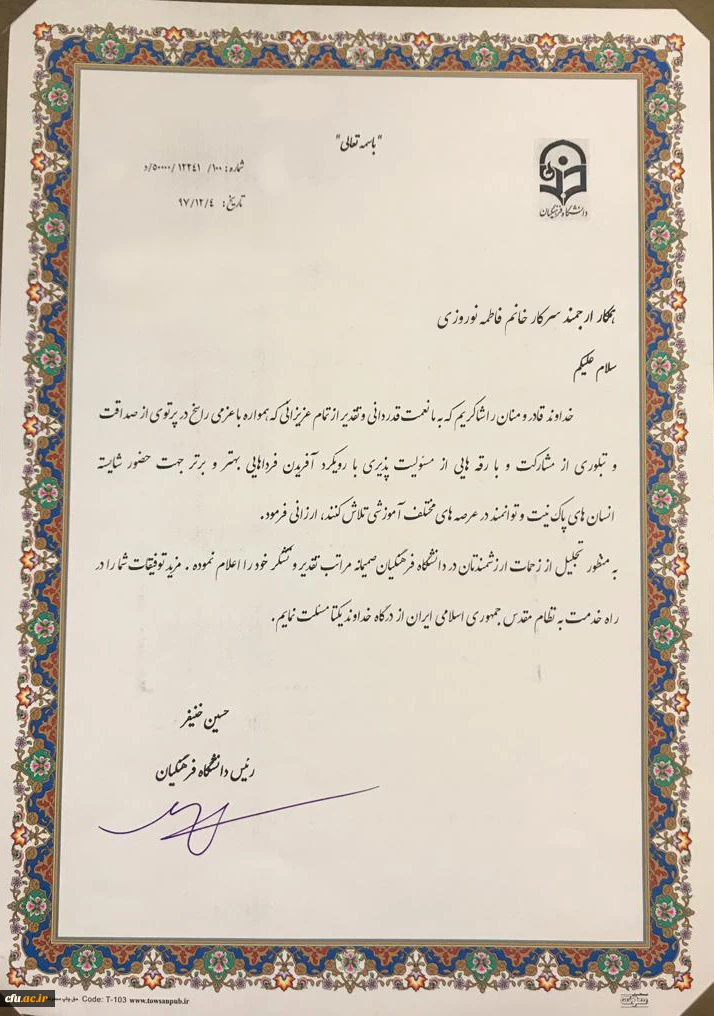 "باسمه تعالی"
شماره: ۱۰۰/ ۱۲۲۴۱ /۵۰۰۰۰/د
تاریخ: ۹۷/۱۲/۴
دانشگاه فرهنگیان
همکار ارجمند سرکار خانم فاطمه نوروزی
سلام علیکم
خداوند قادر و منان را شاکریم که به ما نعمت قدردانی و تقدیر از تمام عزیزانی که همواره با عزمی راسخ در پرتوی از صداقت
و تبلوری از مشارکت و با رقه هایی از مسئولیت پذیری با رویکرد آفریدن فرداهایی بهتر و برتر جهت حضور شایسته
انسان های پاک نیت و توانمند در عرصه های مختلف آموزشی تلاش کنند، ارزانی فرمود.
به منظور تجلیل از زحمات ارزشمندتان در دانشگاه فرهنگیان صمیمانه مراتب تقدیر و تشکر خود را اعلام نموده . مزید توفیقات شما را در
راه خدمت به نظام مقدس جمهوری اسلامی ایران از درگاه خداوند یکتا مسئلت نمایم.
حسین خنیفر
رئیس دانشگاه فرهنگیان
cfu.ac.ir
حق چاپ Code: T-103 www.towsanpub.ir